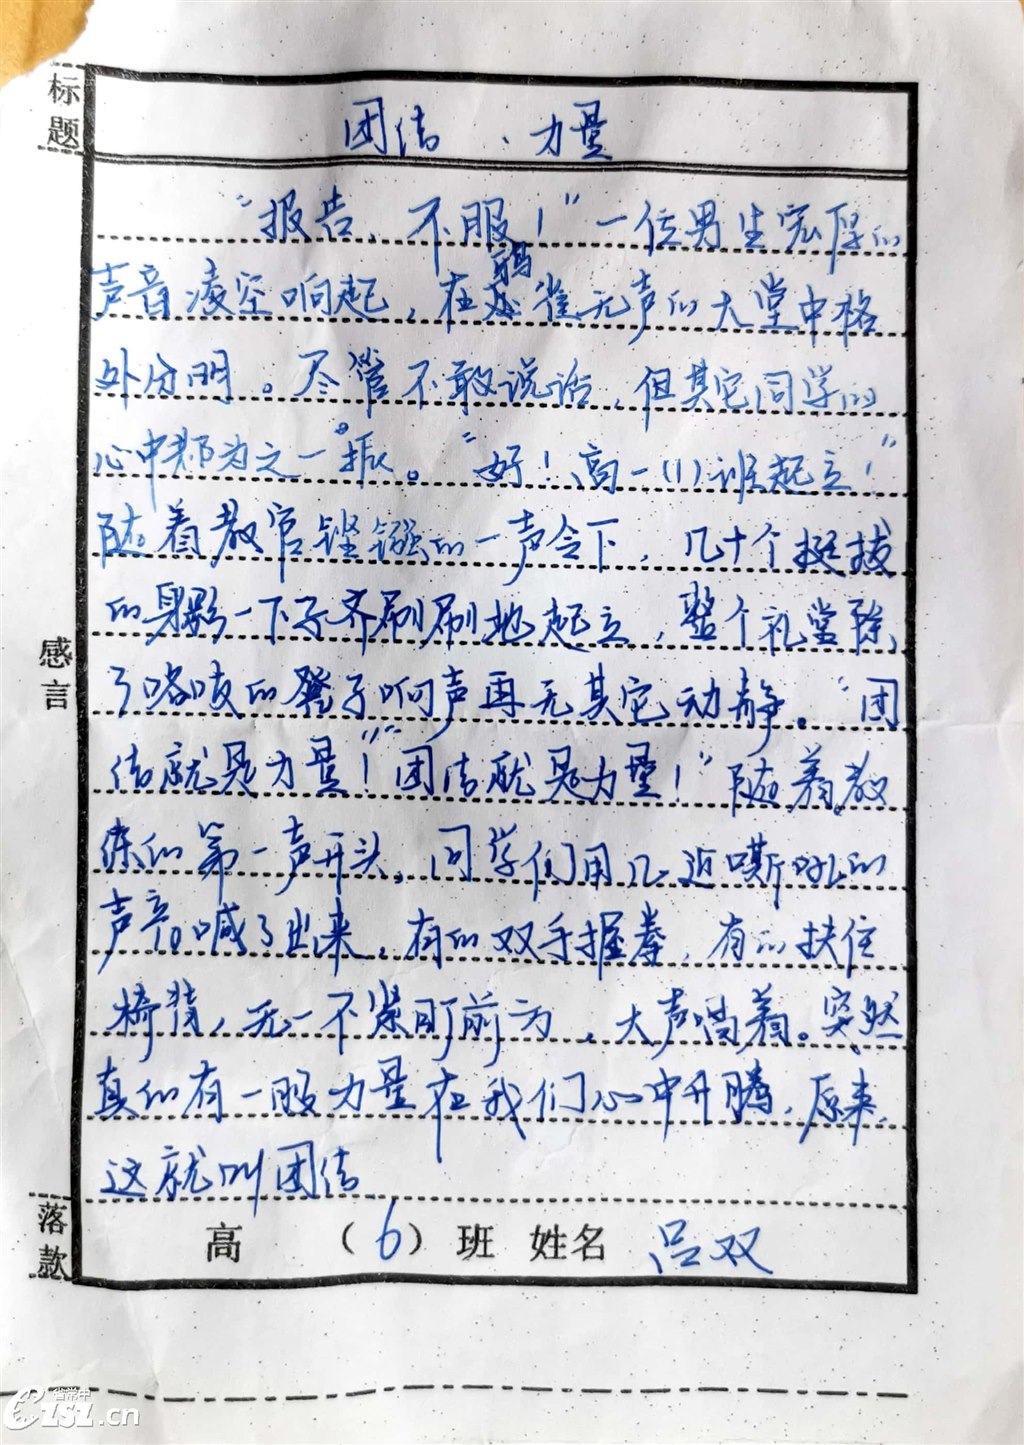 标题
团结、力量
“报告，不服！”一位男生宏厚的
声音凌空响起，在鸦雀无声的大堂中格
外分明。尽管不敢说话，但其它同学的
心中都为之一振。“好！高一(1)班起立！”
随着教官铿锵的一声令下，几十个挺拔
的身影一下子齐刷刷地起立，整个礼堂除
了咯吱的凳子响声再无其它动静。“团
结就是力量！”“团结就是力量！”随着教
练的第一声开头，同学们用几近嘶吼的
声音喊了出来，有的双手握拳，有的扶住
椅背，无一不紧盯前方，大声喊着。突然
真的有一股力量在我们心中升腾，原来，
这就叫团结
感言
落款
高 （6）班 姓名 吕双
省常中
CZSI.cn